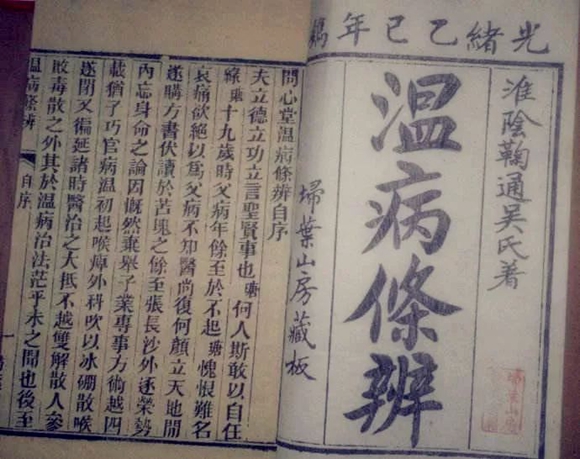 光緒乙巳年鐫
淮陰鞠通吳氏著
温病條辨
埽葉山房藏板
問心堂温病條辨自序
夫立德立功立言聖賢事也瑭何人斯敢以自任
緣瑭十九歲時父病年餘至於不起瑭愧恨難名
哀痛欲絕以爲父病不知醫尚復何顏立天地間
遂購方書伏讀於苫塊之餘至張長沙外逐榮勢
內忘身命之論因慨然棄舉子業專事方術越四
載猶子巧官病温初起喉痺外科吹以冰硼散喉
遂閉又徧延諸時醫治之大抵不越雙解散人參
敗毒散之外其於温病治法茫乎未之聞也後至
温病條辨 自序 一